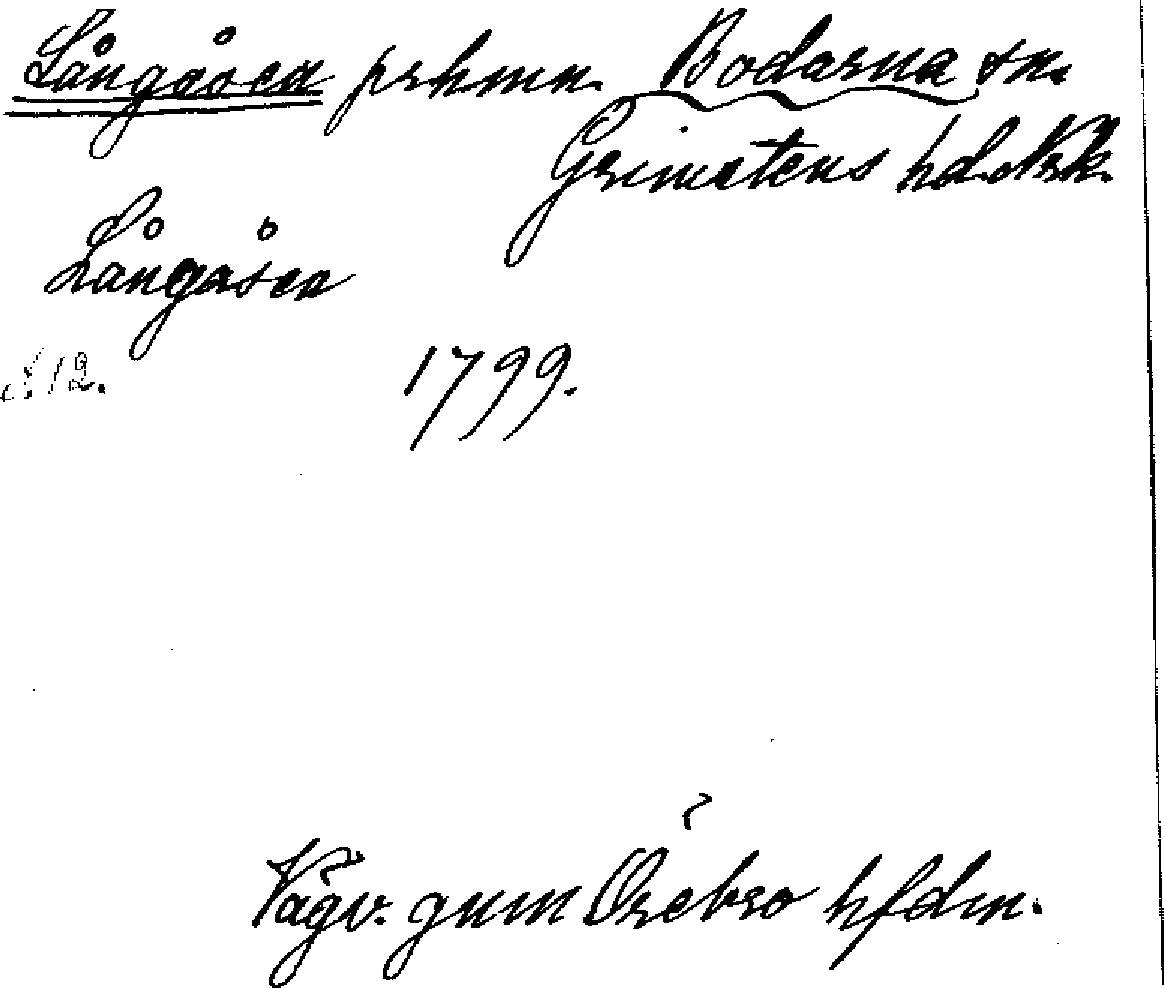 Långåsen prhmn. Bodarna sn.
Grimstens hd. Nrk.
Långåsen
s. 12.
1799.
Vägv. gnm Örebro hfdm.